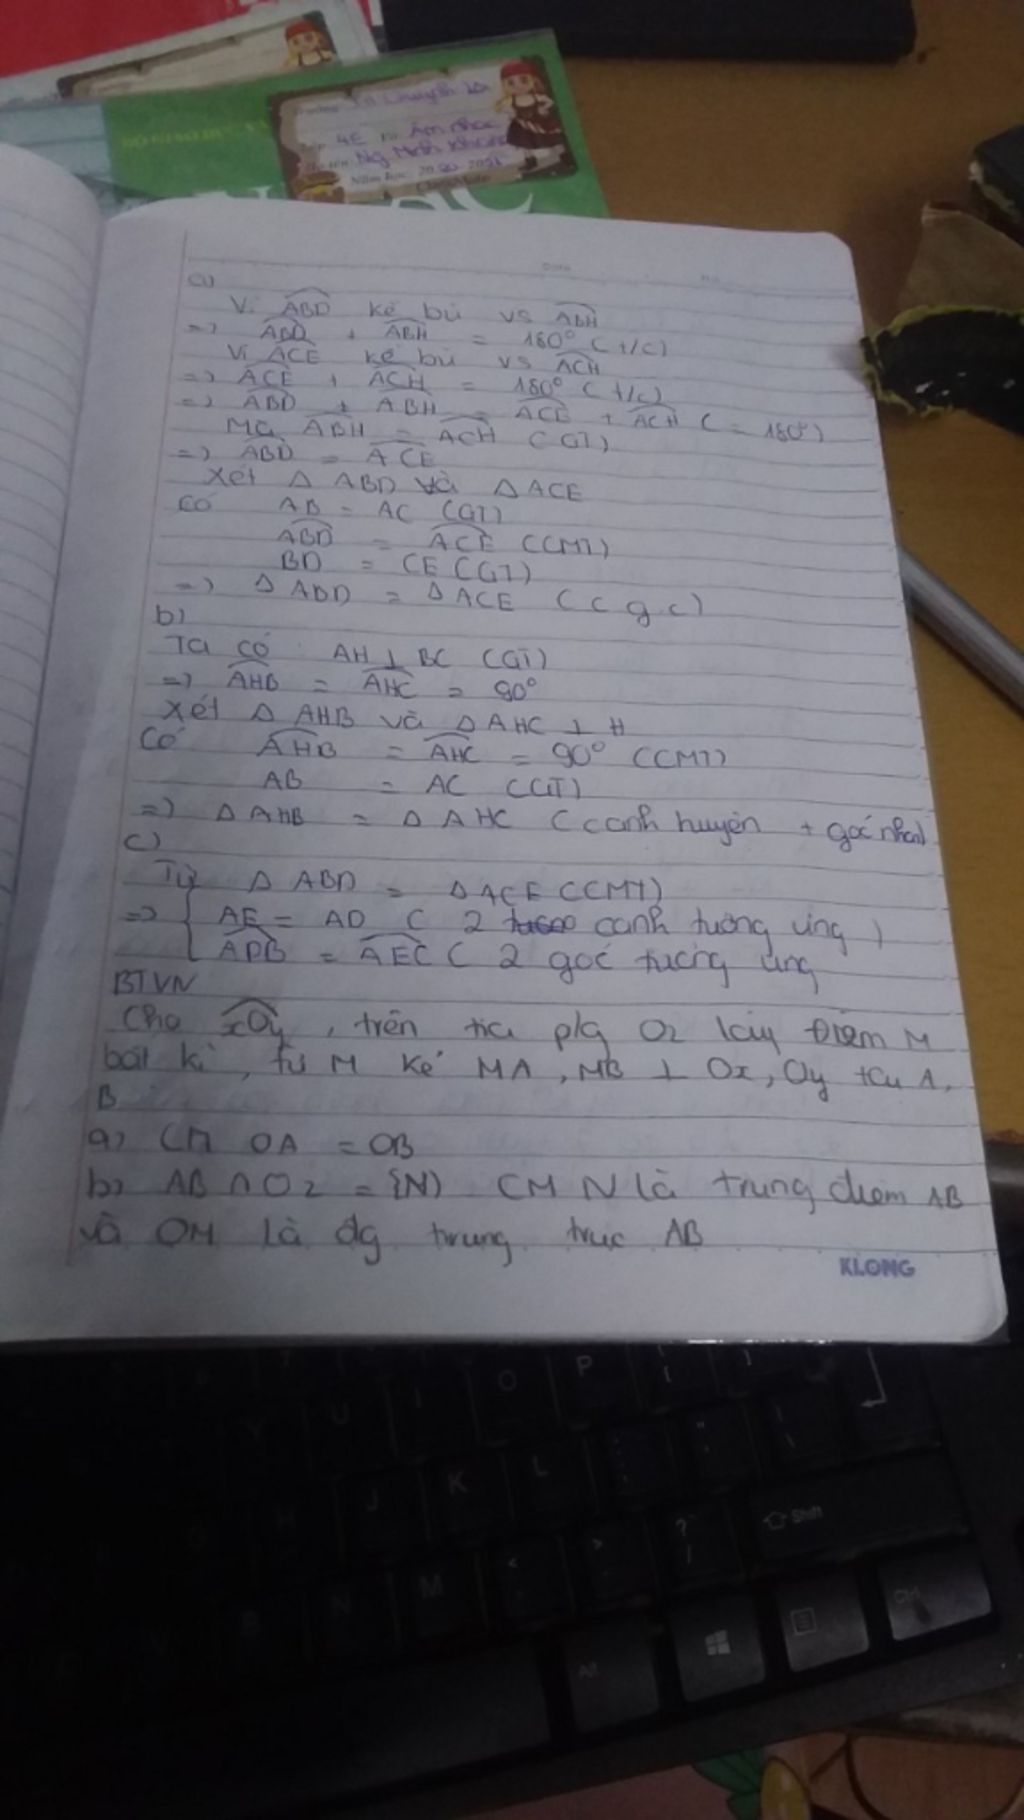 4E Âm nhạc
Ng Minh Khang
Năm học: 20 20 2021
a)
Vì ABD kề bù vs ABH
=> ABD + ABH = 180° (t/c)
Vì ACE kề bù vs ACH
=> ACE + ACH = 180° (t/c)
=> ABD + ABH = ACE + ACH (= 180°)
Mà ABH = ACH (GT)
=> ABD = ACE
Xét Δ ABD và Δ ACE
Có AB = AC (GT)
ABD = ACE (CMT)
BD = CE (GT)
=> Δ ABD = Δ ACE (c g c)
b)
Ta có AH ⊥ BC (GT)
=> AHB = AHC = 90°
Xét Δ AHB và Δ AHC ⊥ H
Có AHB = AHC = 90° (CMT)
AB = AC (GT)
=> Δ AHB = Δ AHC (cạnh huyền + góc nhọn)
c)
Từ Δ ABD = Δ ACE (CMT)
=> { AE = AD ( 2 cạnh tương ứng )
ADB = AEC ( 2 góc tương ứng
BTVN
Cho xOy, trên tia p/g Oz lấy điểm M
bất kì, từ M kẻ MA, MB ⊥ Ox, Oy tại A,
B
a) CM OA = OB
b) AB ∩ Oz = {N} CM N là trung điểm AB
và OM là đg trung trực AB
KLONG
O
P
J
K
L
N
M
Shift
Alt
Ctrl